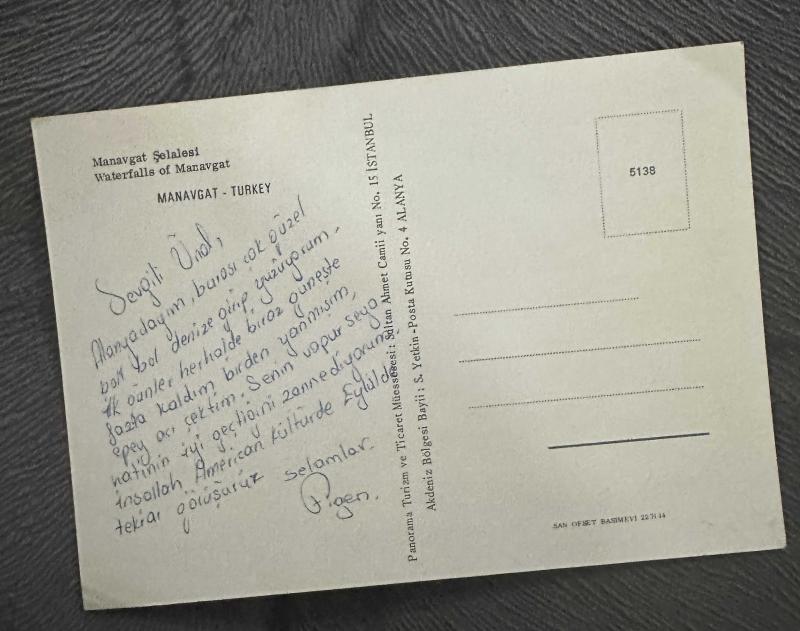 Manavgat Şelalesi
Waterfalls of Manavgat
MANAVGAT - TURKEY
Sevgili Ünal,
Alanyadayım, burası çok güzel
bol bol denize girip yüzüyorum.
İlk günler herhalde biraz güneşte
fazla kaldım birden yanmışım,
epey acı çektim. Senin vapur seya
hatinin iyi geçtiğini zannediyorum
inşallah American kültürde Eylülde
tekrar görüşürüz selamlar.
Panorama Turizm ve Ticaret Müessesesi: Sultan Ahmet Camii yanı No. 15 İSTANBUL
Akdeniz Bölgesi Bayii: S. Yetkin-Posta Kutusu No. 4 ALANYA
5138
SAN OFSET BASIMEVİ 22 71 14